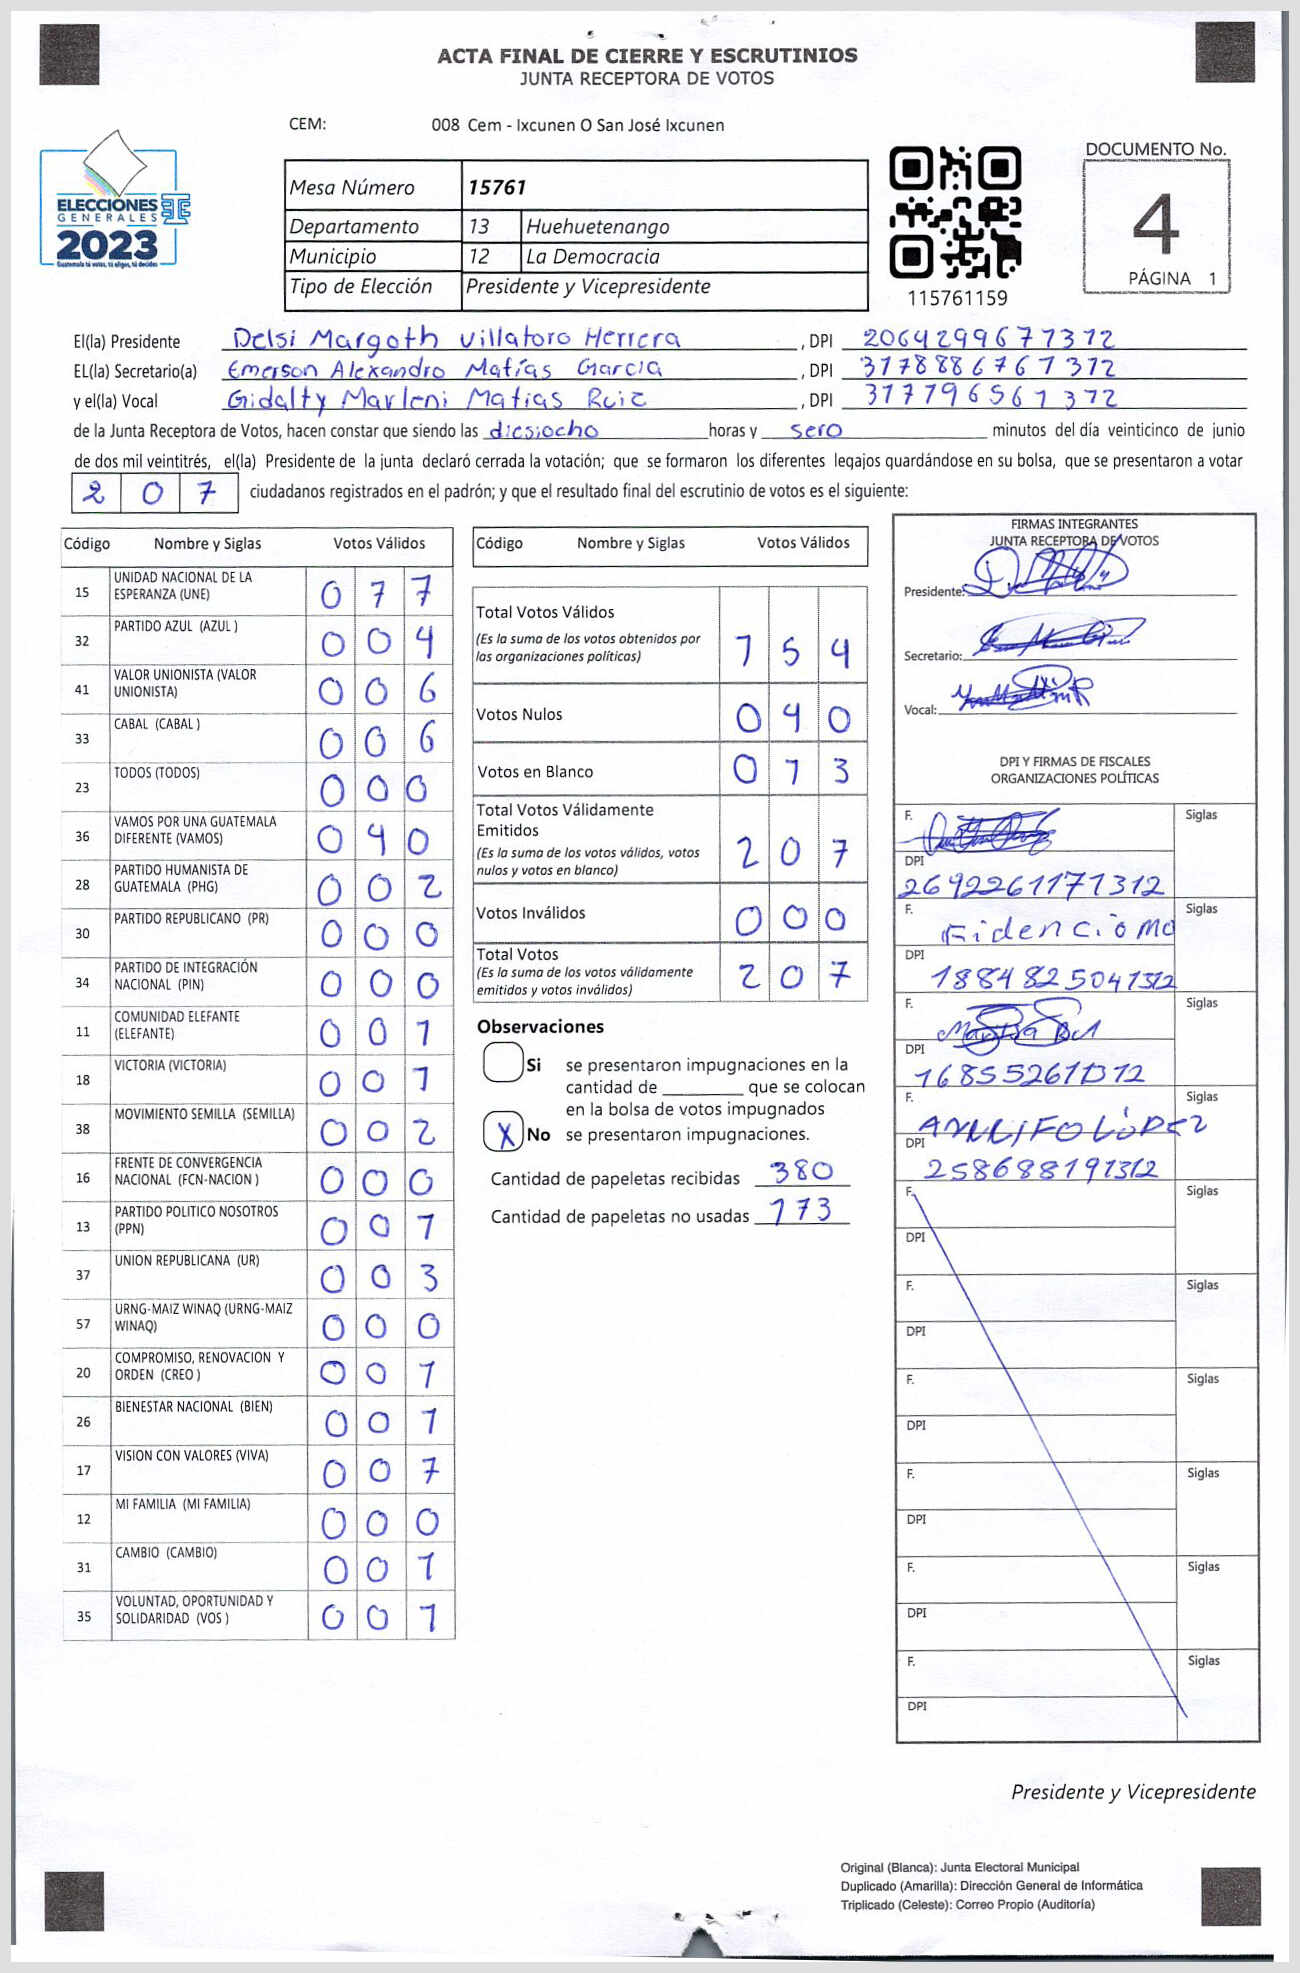 ACTA FINAL DE CIERRE Y ESCRUTINIOS
JUNTA RECEPTORA DE VOTOS
CEM: 008 Cem - Ixcunen O San José Ixcunen
ELECCIONES
GENERALES
2023
Guatemala tú votas, tú eliges, tú decides
Mesa Número 15761
Departamento 13 Huehuetenango
Municipio 12 La Democracia
Tipo de Elección Presidente y Vicepresidente
115761159
DOCUMENTO No.
4
PÁGINA 1
El(la) Presidente Delsi Margoth Villatoro Herrera , DPI 2064299671312
EL(la) Secretario(a) Emerson Alexandro Matías Garcia , DPI 3178886761312
y el(la) Vocal Gidalty Marleni Matias Ruiz , DPI 317796561312
de la Junta Receptora de Votos, hacen constar que siendo las diesiocho horas y sero minutos del día veinticinco de junio
de dos mil veintitrés, el(la) Presidente de la junta declaró cerrada la votación; que se formaron los diferentes legajos guardándose en su bolsa, que se presentaron a votar
2 0 7 ciudadanos registrados en el padrón; y que el resultado final del escrutinio de votos es el siguiente:
Código Nombre y Siglas Votos Válidos
15 UNIDAD NACIONAL DE LA ESPERANZA (UNE) 0 7 7
32 PARTIDO AZUL (AZUL ) 0 0 4
41 VALOR UNIONISTA (VALOR UNIONISTA) 0 0 6
33 CABAL (CABAL ) 0 0 6
23 TODOS (TODOS) 0 0 0
36 VAMOS POR UNA GUATEMALA DIFERENTE (VAMOS) 0 4 0
28 PARTIDO HUMANISTA DE GUATEMALA (PHG) 0 0 2
30 PARTIDO REPUBLICANO (PR) 0 0 0
34 PARTIDO DE INTEGRACIÓN NACIONAL (PIN) 0 0 0
11 COMUNIDAD ELEFANTE (ELEFANTE) 0 0 1
18 VICTORIA (VICTORIA) 0 0 1
38 MOVIMIENTO SEMILLA (SEMILLA) 0 0 2
16 FRENTE DE CONVERGENCIA NACIONAL (FCN-NACION ) 0 0 0
13 PARTIDO POLITICO NOSOTROS (PPN) 0 0 1
37 UNION REPUBLICANA (UR) 0 0 3
57 URNG-MAIZ WINAQ (URNG-MAIZ WINAQ) 0 0 0
20 COMPROMISO, RENOVACION Y ORDEN (CREO ) 0 0 1
26 BIENESTAR NACIONAL (BIEN) 0 0 1
17 VISION CON VALORES (VIVA) 0 0 7
12 MI FAMILIA (MI FAMILIA) 0 0 0
31 CAMBIO (CAMBIO) 0 0 1
35 VOLUNTAD, OPORTUNIDAD Y SOLIDARIDAD (VOS ) 0 0 1
Código Nombre y Siglas Votos Válidos
Total Votos Válidos
(Es la suma de los votos obtenidos por
las organizaciones políticas) 1 5 4
Votos Nulos 0 4 0
Votos en Blanco 0 1 3
Total Votos Válidamente
Emitidos
(Es la suma de los votos válidos, votos
nulos y votos en blanco) 2 0 7
Votos Inválidos 0 0 0
Total Votos
(Es la suma de los votos válidamente
emitidos y votos inválidos) 2 0 7
Observaciones
Si se presentaron impugnaciones en la
cantidad de ________ que se colocan
en la bolsa de votos impugnados
X No se presentaron impugnaciones.
Cantidad de papeletas recibidas 380
Cantidad de papeletas no usadas 173
FIRMAS INTEGRANTES
JUNTA RECEPTORA DE VOTOS
Presidente:
Secretario:
Vocal:
DPI Y FIRMAS DE FISCALES
ORGANIZACIONES POLÍTICAS
F. Siglas
DPI
2692261171312
F. Fidencio Mo Siglas
DPI
1884825041312
F. Siglas
DPI
F. Siglas
DPI
258688191312
F. Siglas
DPI
F. Siglas
DPI
F. Siglas
DPI
F. Siglas
DPI
F. Siglas
DPI
F. Siglas
DPI
Presidente y Vicepresidente
Original (Blanca): Junta Electoral Municipal
Duplicado (Amarilla): Dirección General de Informática
Triplicado (Celeste): Correo Propio (Auditoría)